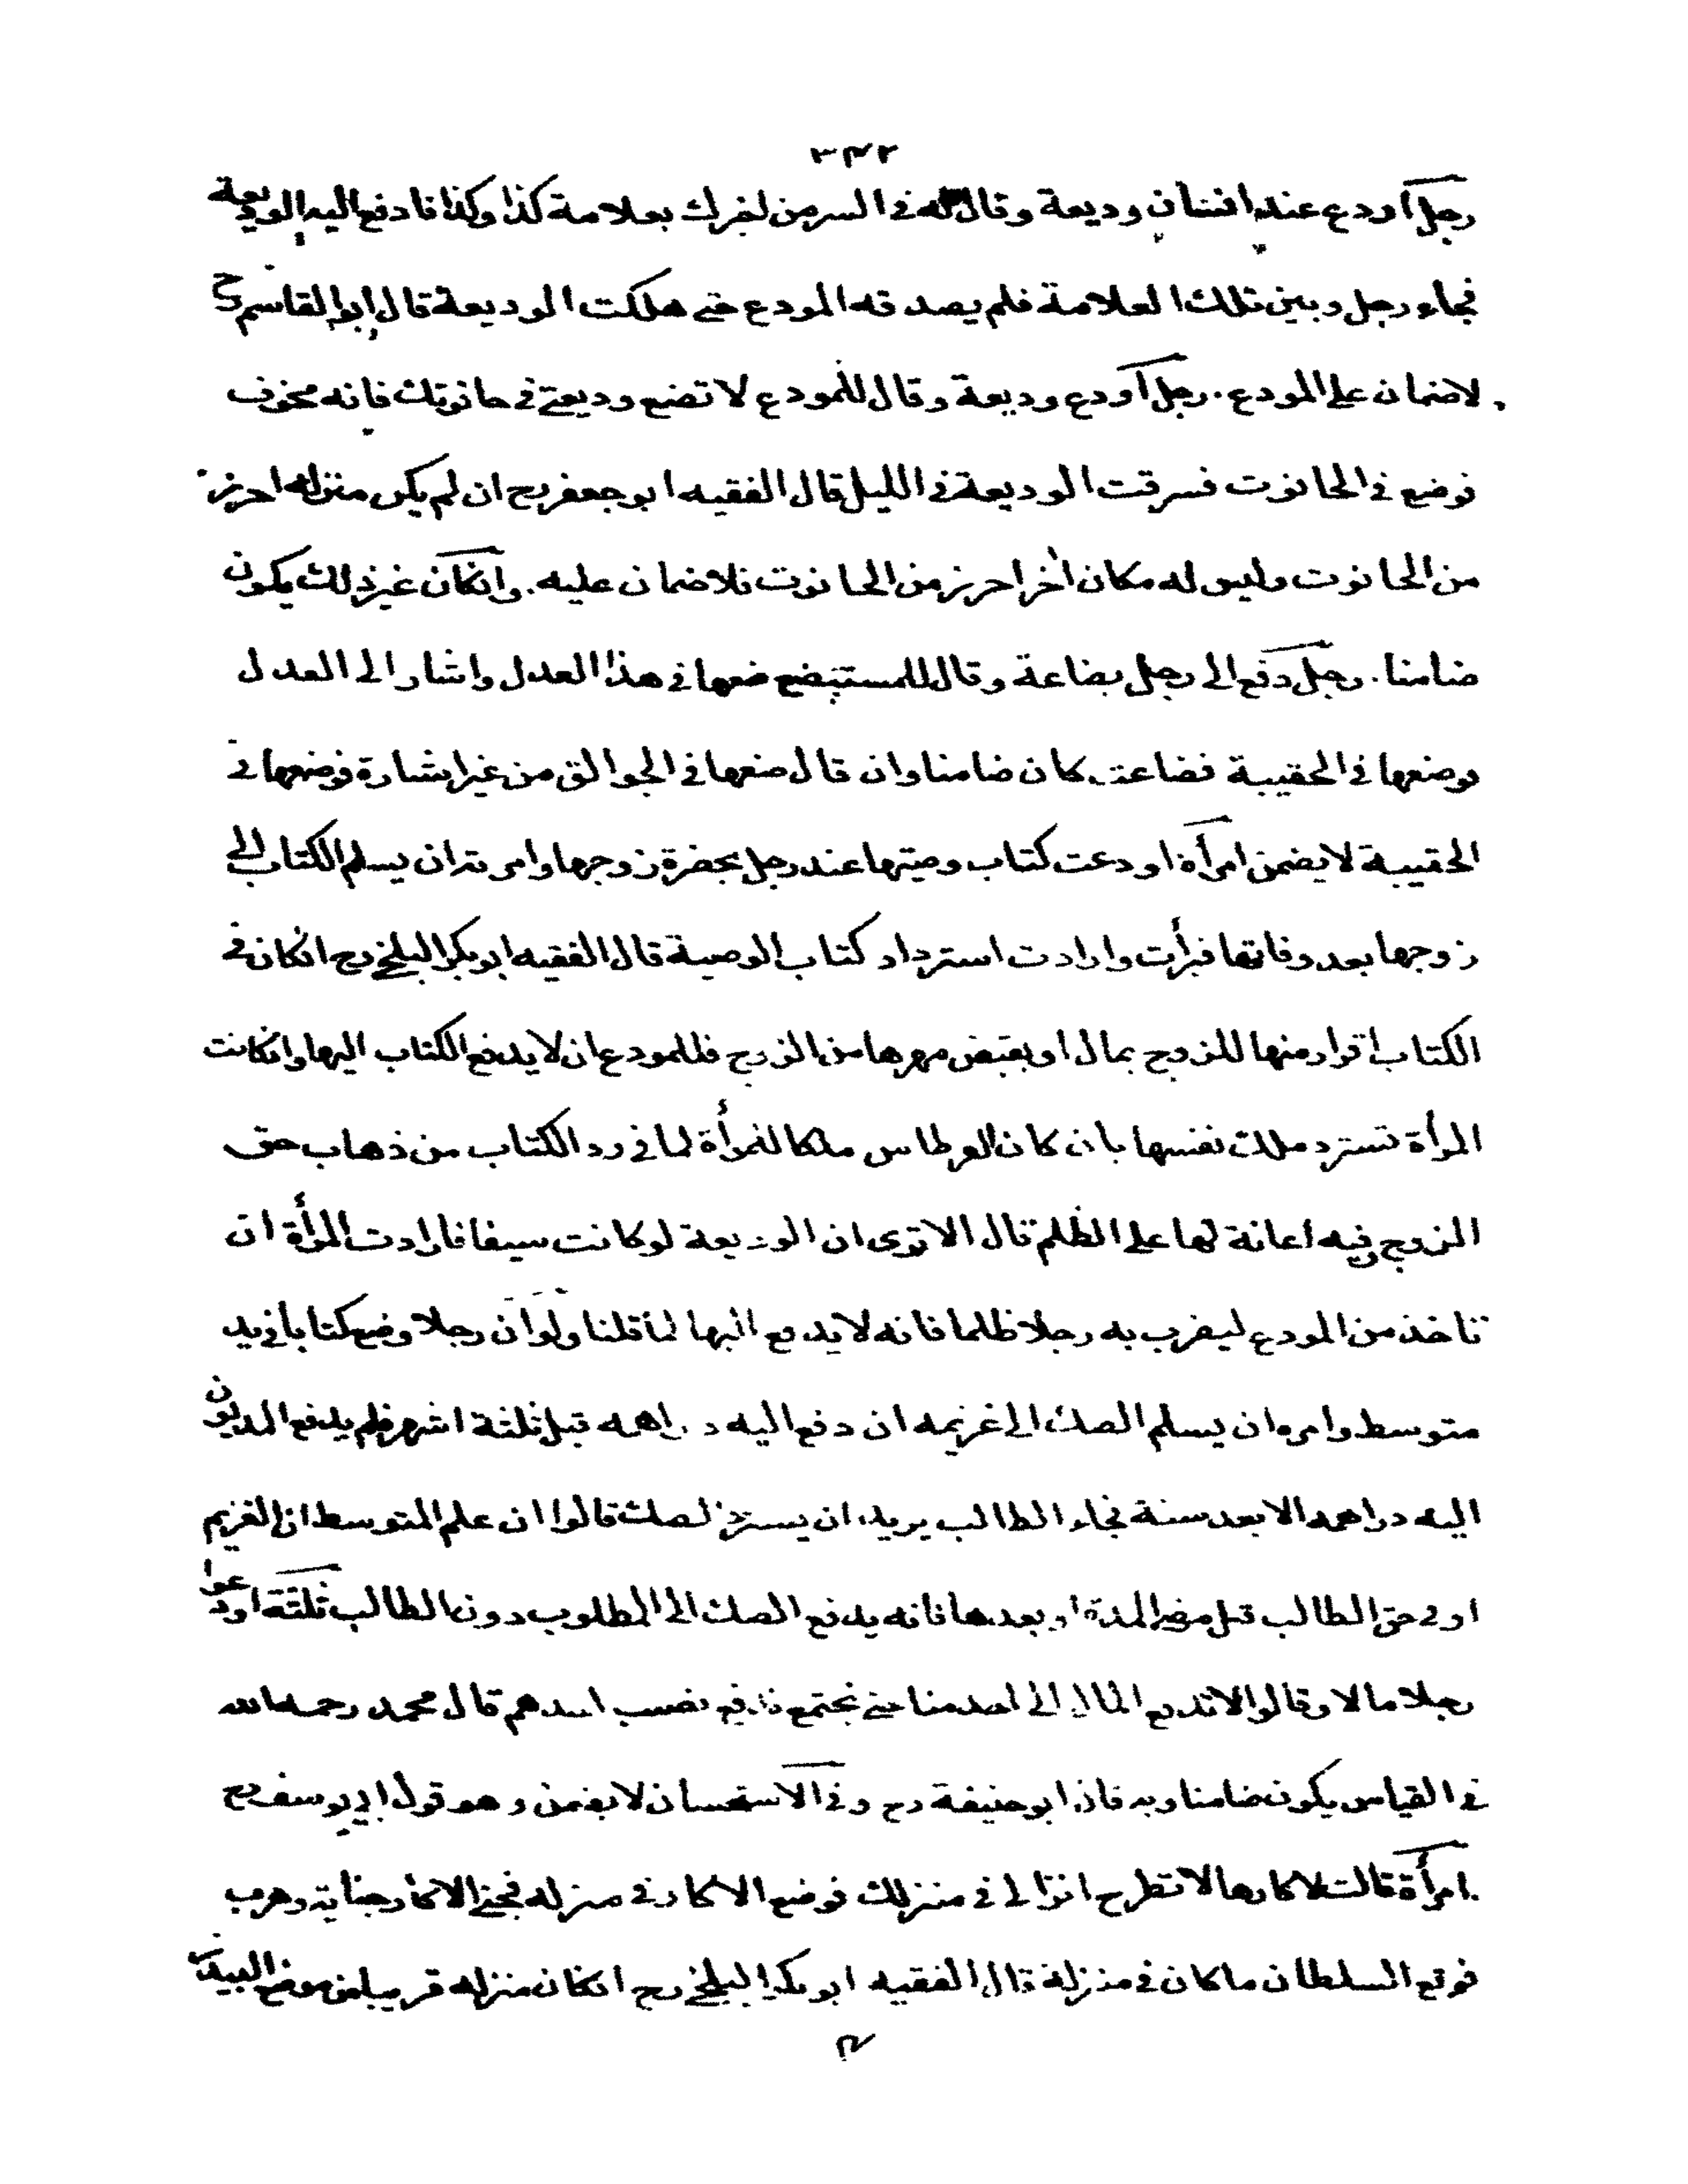 ٣٤٢
رجل اودع عند انسان وديعة وقال له في السر من اخبرك بعلامة كذا وكذا فادفع اليه الوديعة
فجاء رجل وبين تلك العلامة فلم يصدقه المودع حتى هلكت الوديعة قال ابو القاسم رح
لاضمان على المودع . رجل اودع وديعة وقال للمودع لا تضع وديعتي في حانوتك فانه مخوف
فوضع في الحانوت فسرقت الوديعة في الليل قال الفقيه ابو جعفر رح ان لم يكن منزله احرز
من الحانوت وليس له مكان اخر احرز من الحانوت فلاضمان عليه . وانكان غير ذلك يكون
ضامنا . رجل دفع الى رجل بضاعة وقال للمستبضع ضعها في هذا العدل واشار الى العدل
فوضعها في الحقيبة فضاعت كان ضامنا وان قال ضعها في الجوالق من غير اشارة فوضعها في
الحقيبة لا يضمن امرأة اودعت كتاب وصيتها عند رجل بحضرة زوجها وامرته ان يسلم الكتاب الى
زوجها بعد وفاتها فبرأت وارادت استرداد كتاب الوصية قال الفقيه ابو بكر البلخي رح انكان في
الكتاب اقرار منها للزوج بمال او بقبض مهرها من الزوج فللمودع ان لا يدفع الكتاب اليها وانكانت
المرأة تسترد ملك نفسها بان كان القرطاس ملكا للمرأة لما في رد الكتاب من ذهاب حق
الزوج وفيه اعانة لها على الظلم قال الا ترى ان الوديعة لوكانت سيفا فارادت المرأة ان
تاخذ من المودع ليضرب به رجلا ظلما فانه لا يدفع اليها لما قلنا ولو ان رجلا وضع كتابا في يد
متوسط وامره ان يسلم الصك الى غريمه ان دفع اليه دراهمه قبل ثلثة اشهر فلم يدفع المديون
اليه دراهمه الا بعد سنة فجاء الطالب يريد ان يسترد الصك قالوا ان علم المتوسط ان الغريم
اوفى حق الطالب قبل مضى المدة او بعدها فانه يدفع الصك الى المطلوب دون الطالب ثلثة اودعوا
رجلا مالا وقالوا لا تدفع المال الى احد منا حتى نجتمع فدفع نصيب احدهم قال محمد رحمه الله
في القياس يكون ضامنا وبه قال ابو حنيفة رح وفي الاستحسان لا يضمن وهو قول ابي يوسف رح
امرأة قالت لاكارها لا تطرح انزالى في منزلك فوضع الاكار في منزله فجنى الاكار جناية وهرب
فرفع السلطان ماكان في منزله قال الفقيه ابو بكر البلخي رح انكان منزله قريبا من موضع البيدر